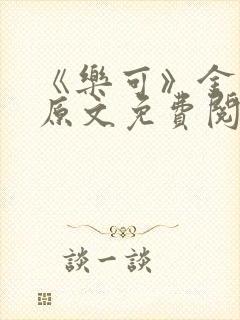 《樂可》全
原文免費閱
談一談